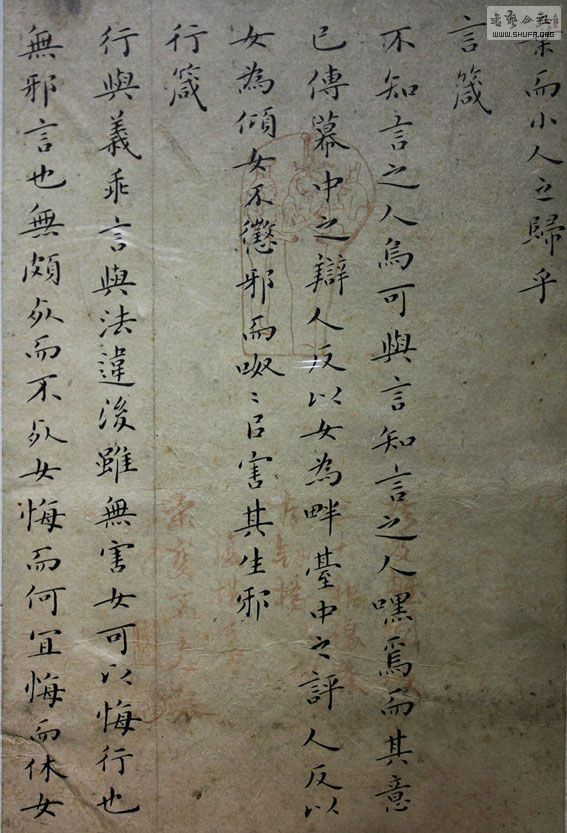 棄而小人之歸乎
言箴
不知言之人烏可與言知言之人嘿焉而其意
已傳幕中之辯人反以女為畔臺中之評人反以
女為傾女不懲邪而呶〻以害其生邪
行箴
行與義乖言與法違後雖無害女可以悔行也
無邪言也無頗死而不死女悔而何宜悔而休女
书艺公社
WWW.SHUFA.ORG